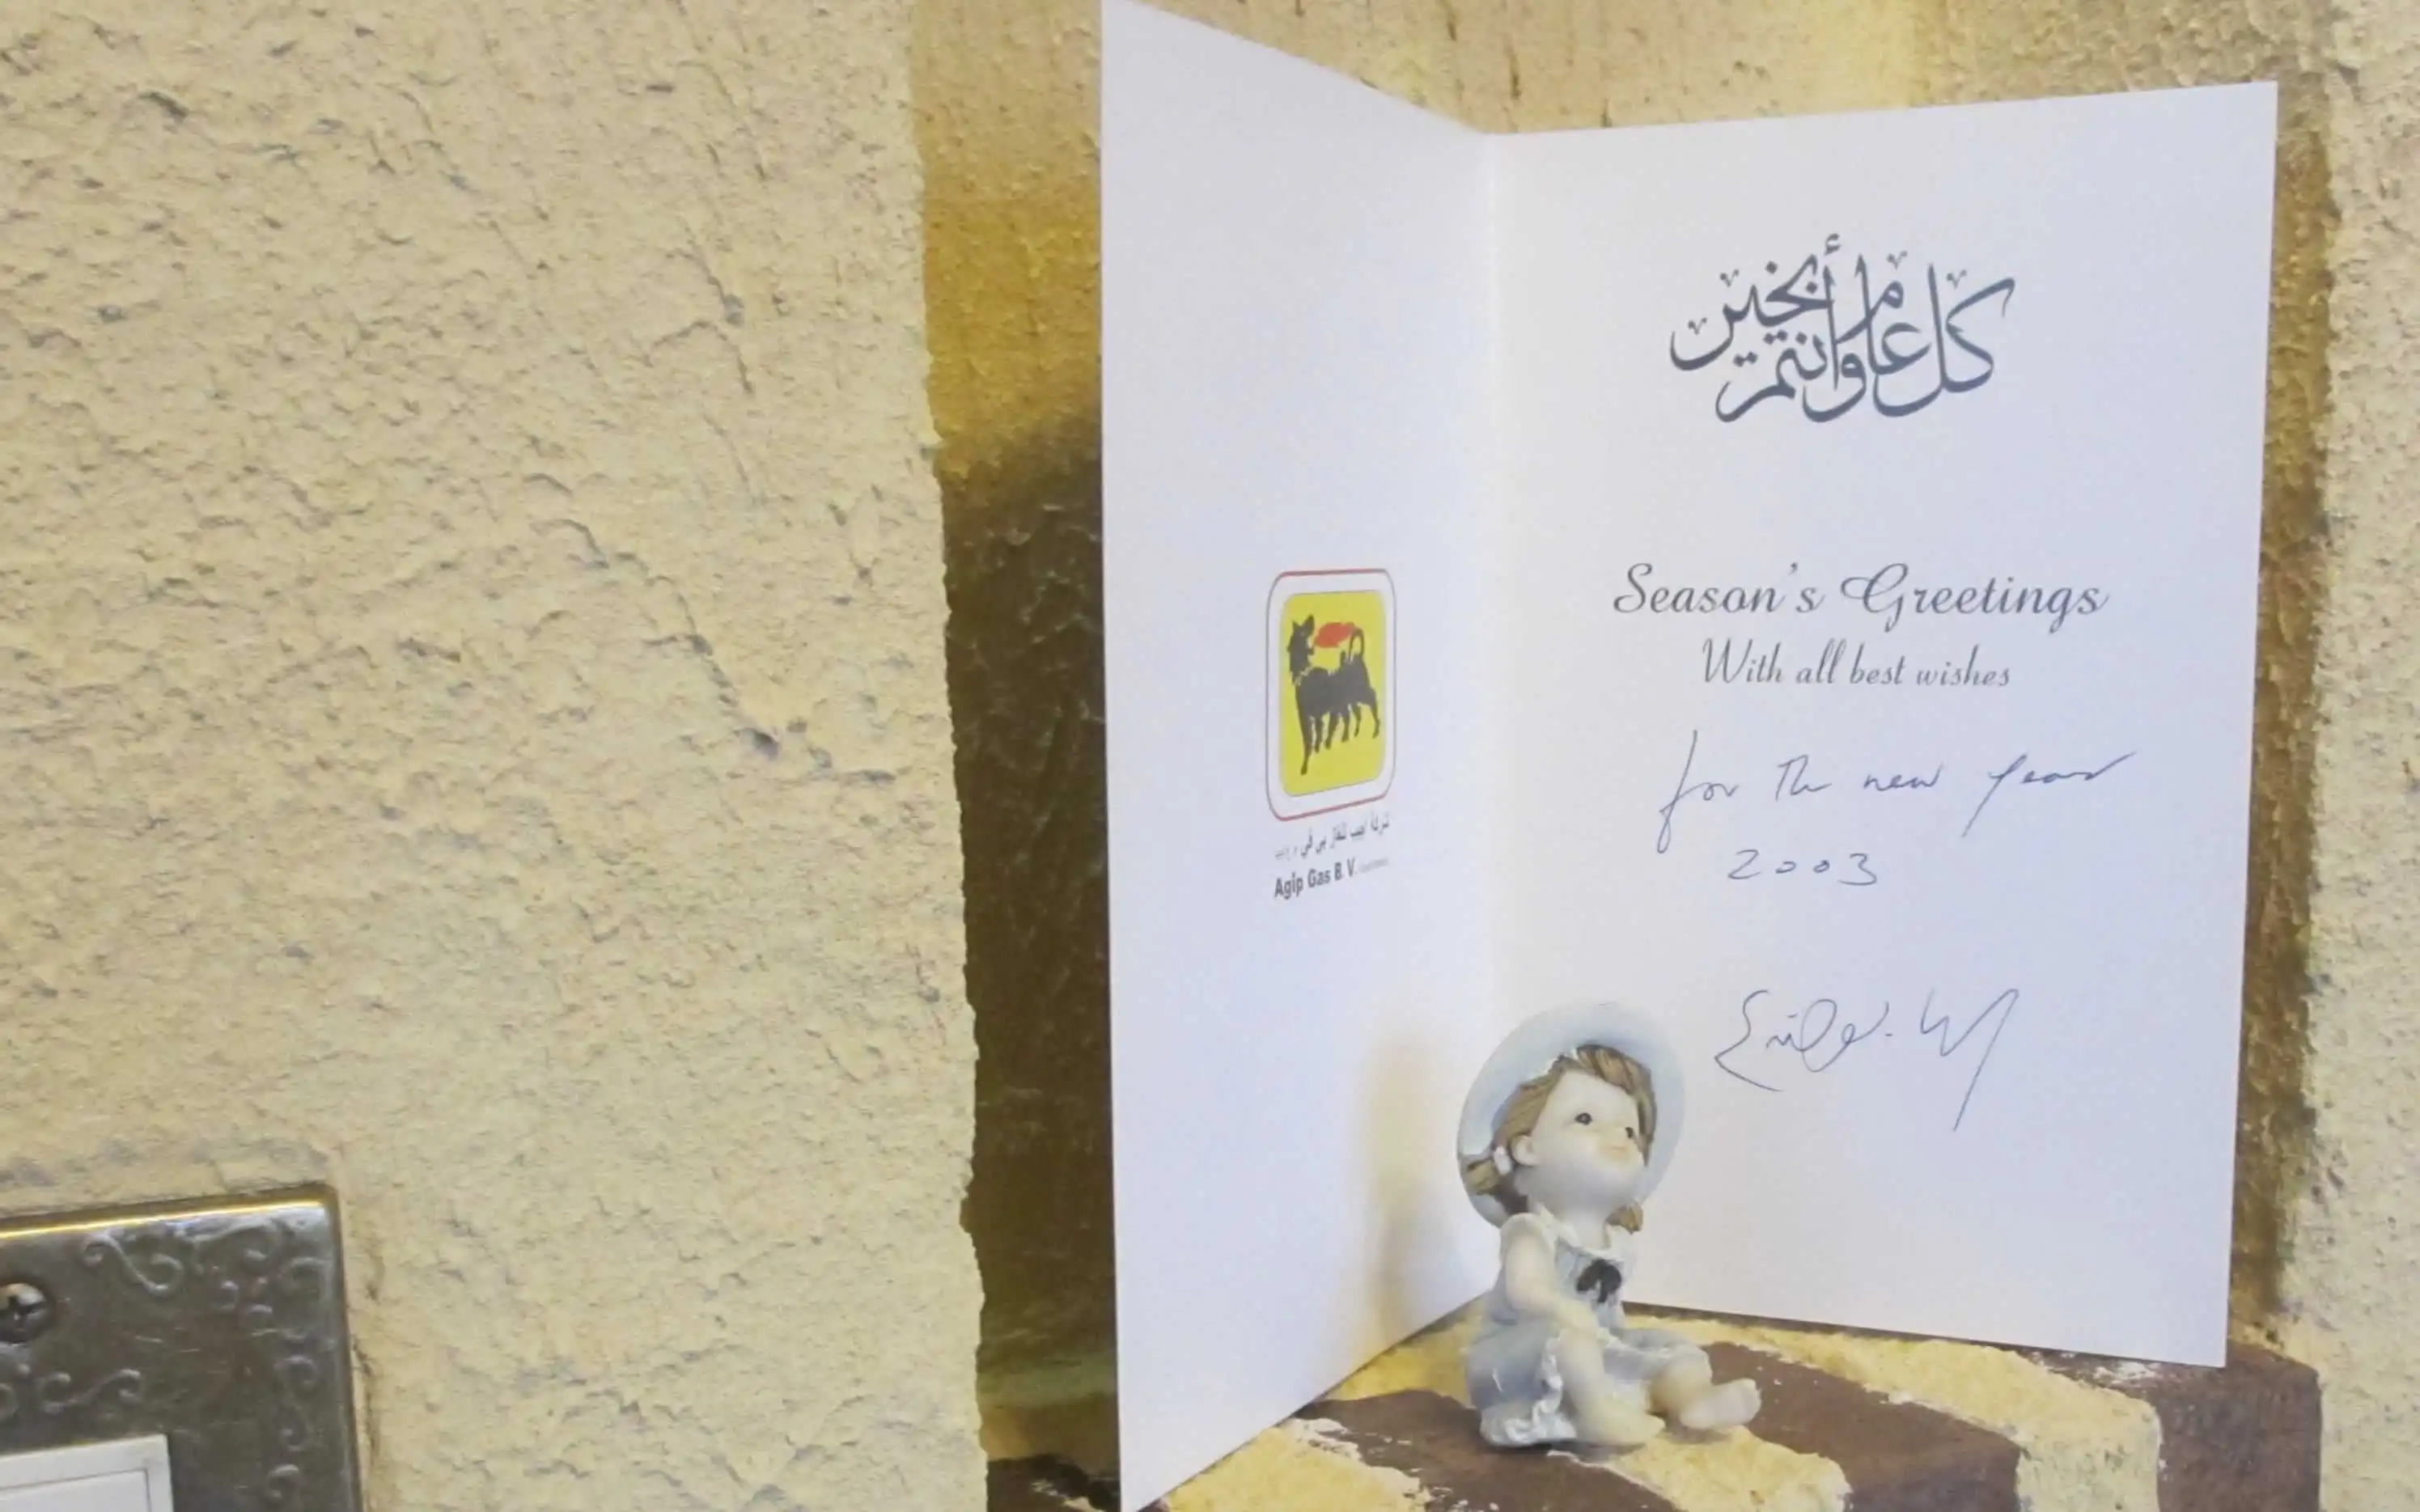 شركة اجيب للغاز بي في
Agip Gas B.V.
كل عام وأنتم بخير
Season's Greetings
With all best wishes
for the new year
2003